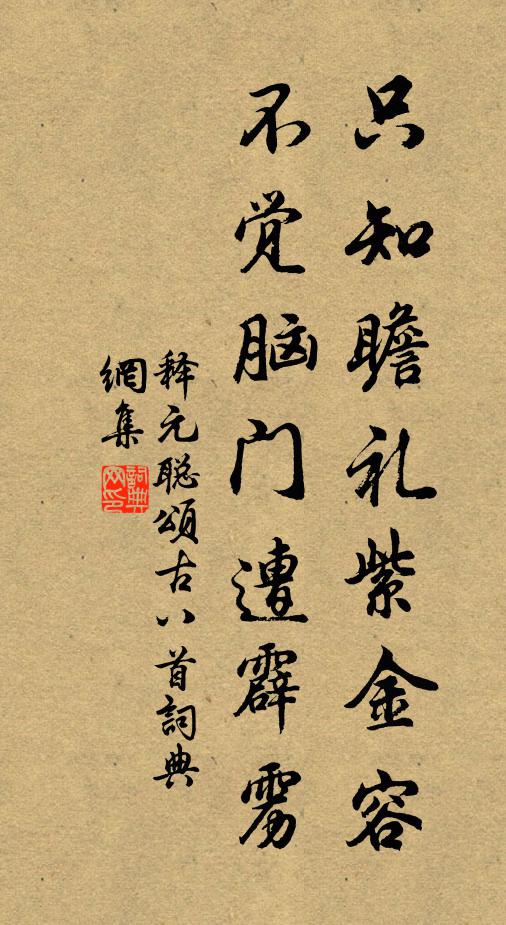 只知瞻礼紫金容
不觉脑门遭霹雳
释元聪頌古八首詞典
網集
詞典
网印